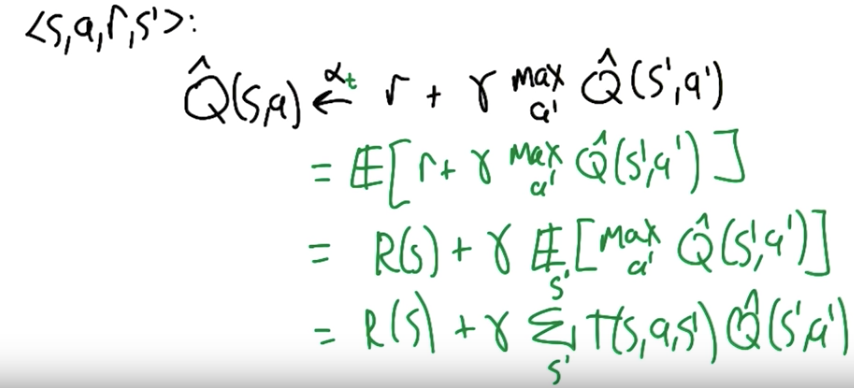 <s,a,r,s'>:
Q̂(s,a) ←^{α_t} r + γ max_{a'} Q̂(s',a')
= 𝔼[r + γ max_{a'} Q̂(s',a')]
= R(s) + γ 𝔼_{s'}[max_{a'} Q̂(s',a')]
= R(s) + γ Σ_{s'} T(s,a,s') Q̂(s',a')